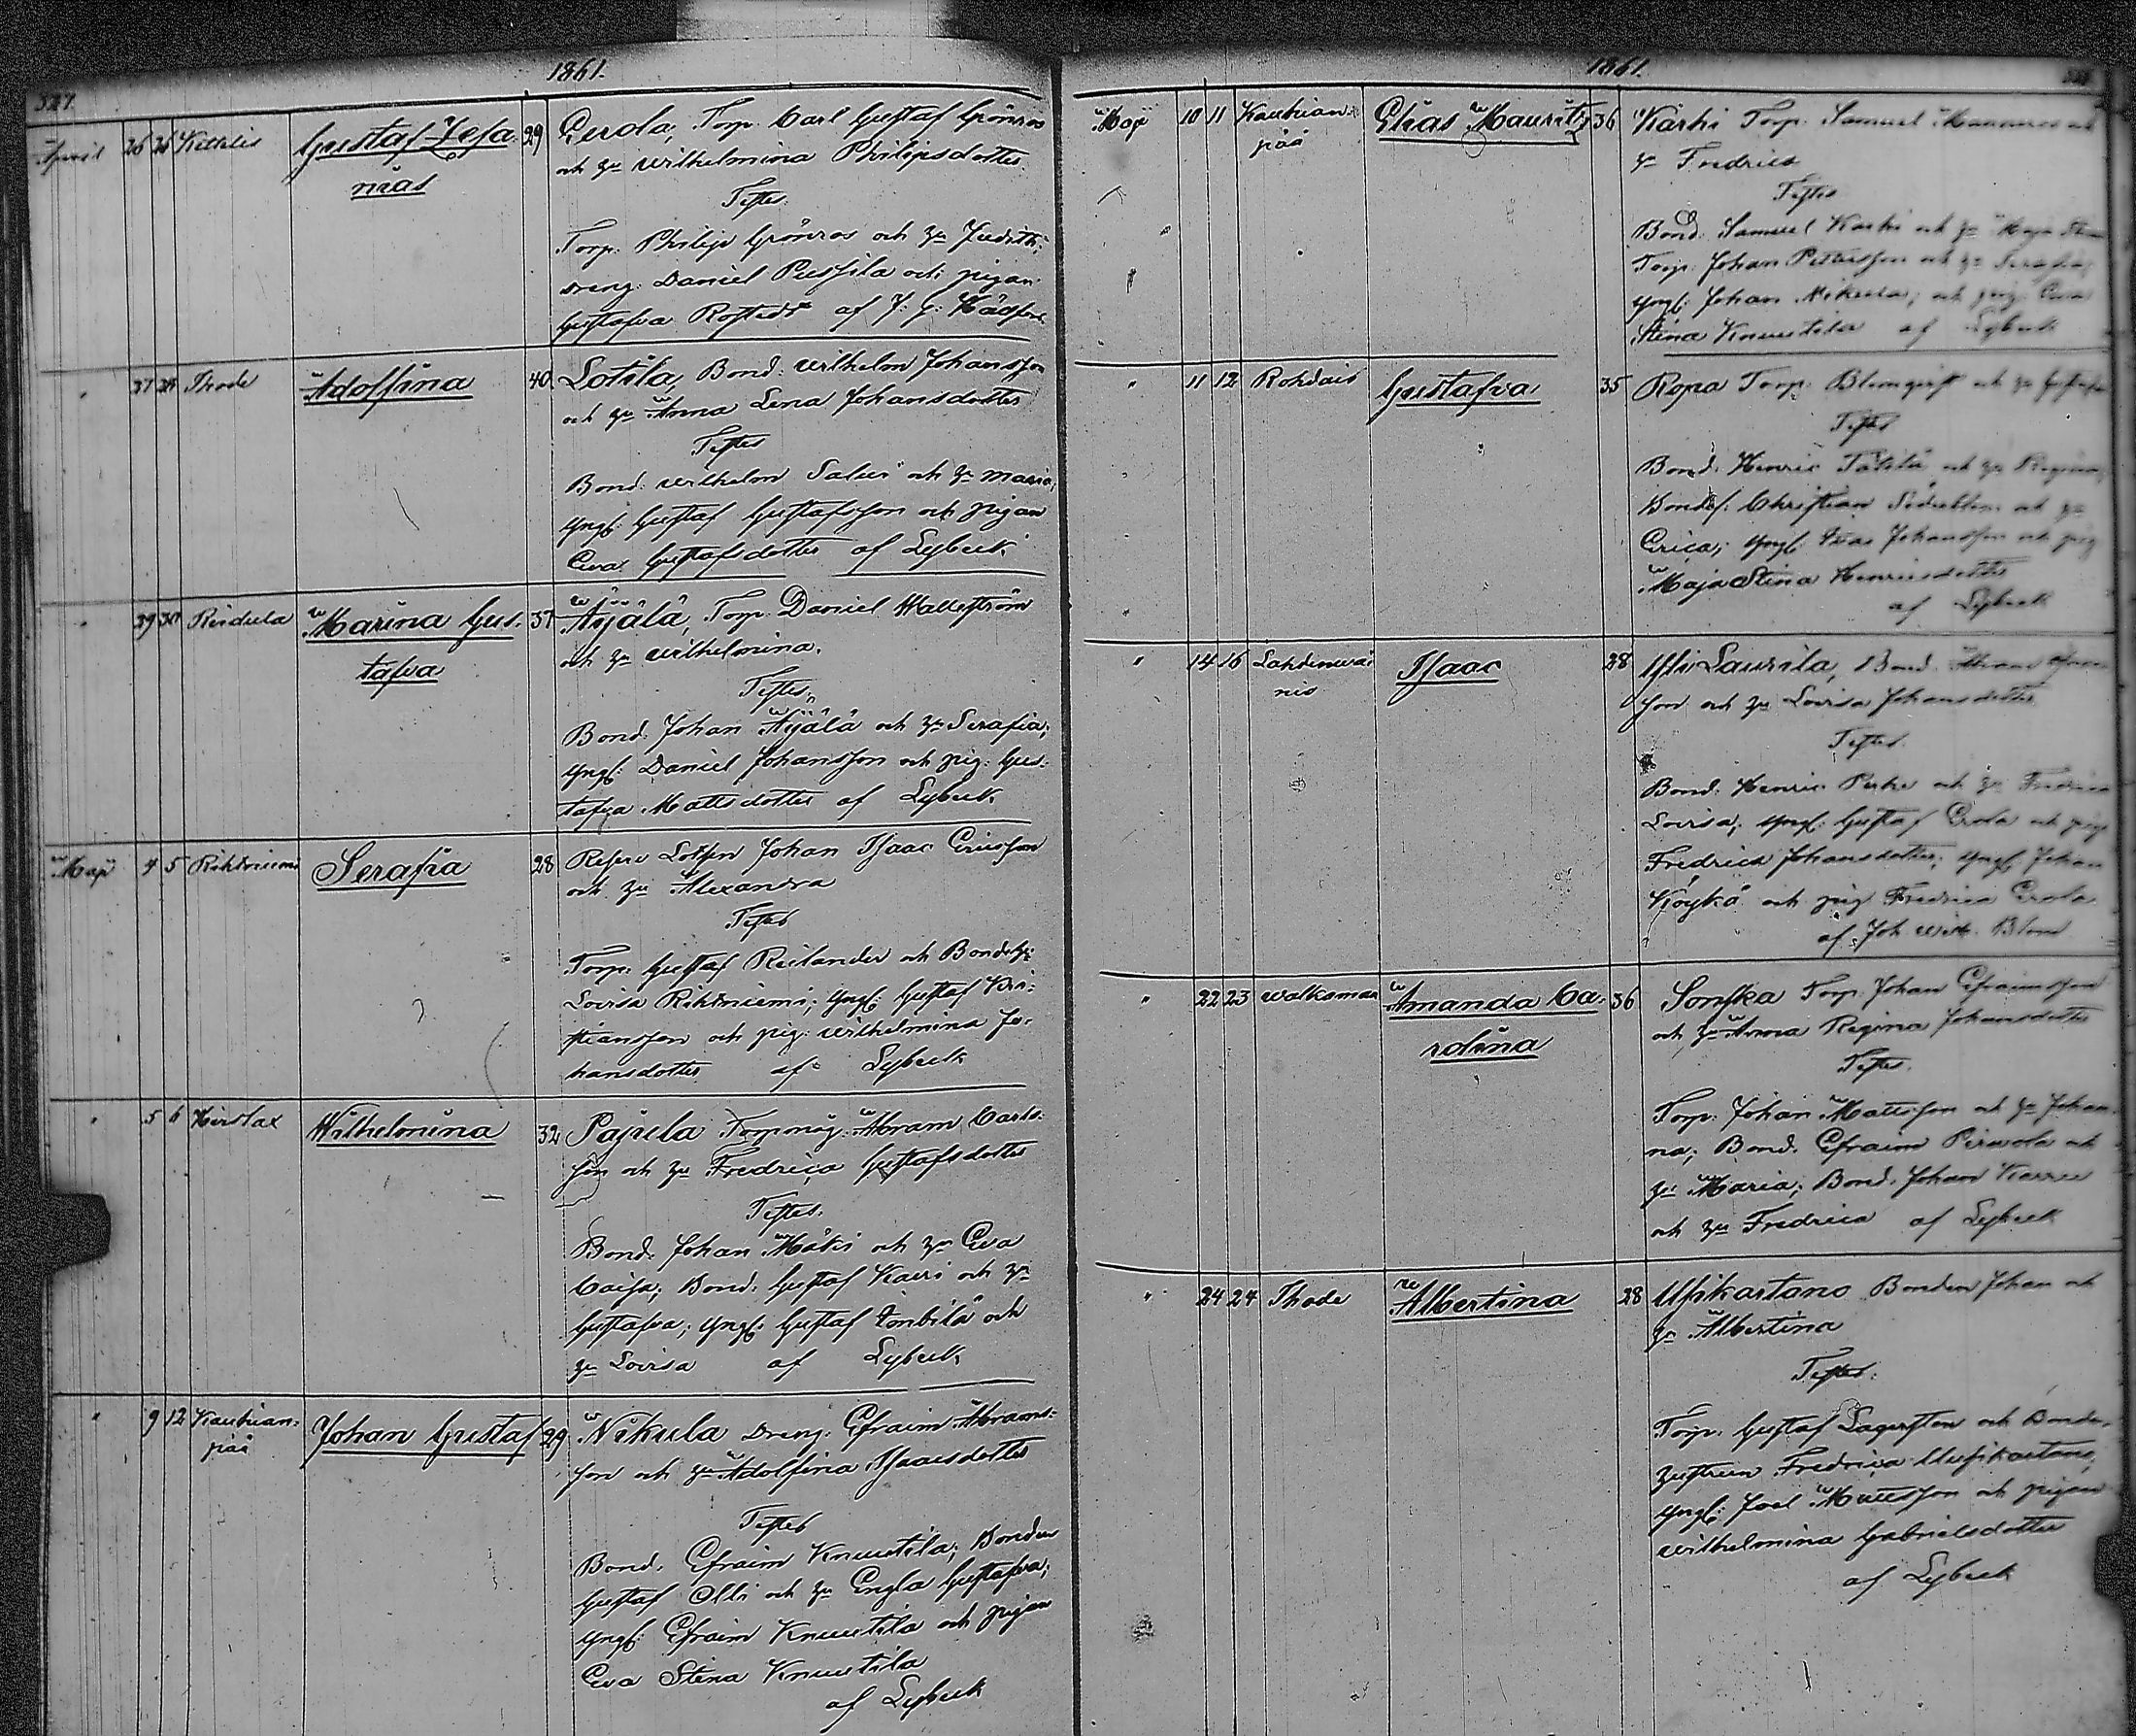 1861.
327.
April 26 26 Kettelis Gustaf Zefa- 29 Eerola, Torp. Carl Gustaf Grönroos
nias och hu Wilhelmina Philipsdotter
Testes:
Torp. Philip Grönroos och hu Judith;
dreng: Daniel Pussila och pigan
Gustafva Rostedt af J. G.
" 27 28 Thode Adolfina 40 Lotila, Bond: Wilhelm Johansson
och hu Anna Lena Johansdotter
Testes
Bond: Wilhelm Salui och hu Maria,
Yngl: Gustaf Gustafsson och pigan
Eva Gustafsdotter af Lybeck
" 29 30 Reidula Marina Gus- 37 Äyälä, Torp. Daniel Wallström
tafva och hu Wilhelmina.
Testes,
Bond. Johan Äyälä och hu Serafia;
Yngl: Daniel Johansson och pig: Gus-
tafva Mattsdotter af Lybeck
Maji 4 5 Rihtniemi Serafia 28 Reserv Lotsen Johan Isaac Ericsson
och hu Alexandra
Testes
Torp: Gustaf Reilander och Bondehu:
Lovisa Rihtniemi; Yngl: Gustaf Kri-
stiansson och pig: Wilhelmina Jo-
hansdotter af Lybeck
" 5 6 Hirslax Wilhelmina 32 Pajula Torpmåg: Abram Carls-
son och hu Fredrica Gustafsdotter
Testes.
Bond: Johan Mäki och hu Eva
Caisa; Bond: Gustaf Kauri och hu
Gustafva; Yngl: Gustaf Tonbilä och
hu Lovisa af Lybeck
" 9 12 Kautuan- Johan Gustaf 29 Nikula Dreng: Efraim Abrams-
pää son och hu Adolfina Isaacsdotter
Testes
Bond. Efraim Knuutila; Bonden
Gustaf Olli och hu Engla Gustafva;
Yngl: Efraim Knuutila och pigan
Eva Stina Knuutila
af Lybeck
1861.
Maji 10 11 Kautuan- Elias Mauritz 36 Karhi Torp. Samuel
pää hu Fredrica
Testes
Bond. Samuel Karhi och hu Maja
Torp. Johan Pettersson och hu Serafia;
Yngl: Johan Mikkola; och pig: Eva
Stina Knuutila af Lybeck
" 11 12 Rohdais Gustafva 35 Ropa Torp. Blomqvist och hu Gustafva
Testes
Bond. Henric Tätilä och hu Regina,
Bonds. Christian och hu
Erica; Yngl: Johansson och pig
Maja Stina Henricsdotter
af Lybeck
" 14 16 Lahdenvai- Isaac 28 Yli Laurila, Bond.
nio son och hu Lovisa Johansdotter
Testes.
Bond. Henric Perho och hu Fredrica
Lovisa; Yngl: Gustaf Erola och pig
Fredrica Johansdotter; Yngl: Johan
Köykä och pig Fredrica Erola
af Joh. Wilh. Blom
" 22 23 Walksmaa Amanda Ca- 36 Sonska Torp. Johan Efraimsson
rolina och hu Anna Regina Johansdotter
Testes.
Torp. Johan Mattsson och hu Johan-
na; Bond. Efraim Pirvola och
hu Maria; Bond. Johan Karru
och hu Fredrica af Lybeck
" 24 24 Thode Albertina 28 Usikartano Bonden Johan och
hu Albertina
Testes:
Torp. Gustaf Lagersten och Bonde-
hustrun Fredrica Uusikartano,
Yngl: Joel Mattsson och pigan
Wilhelmina Gabrielsdotter
af Lybeck